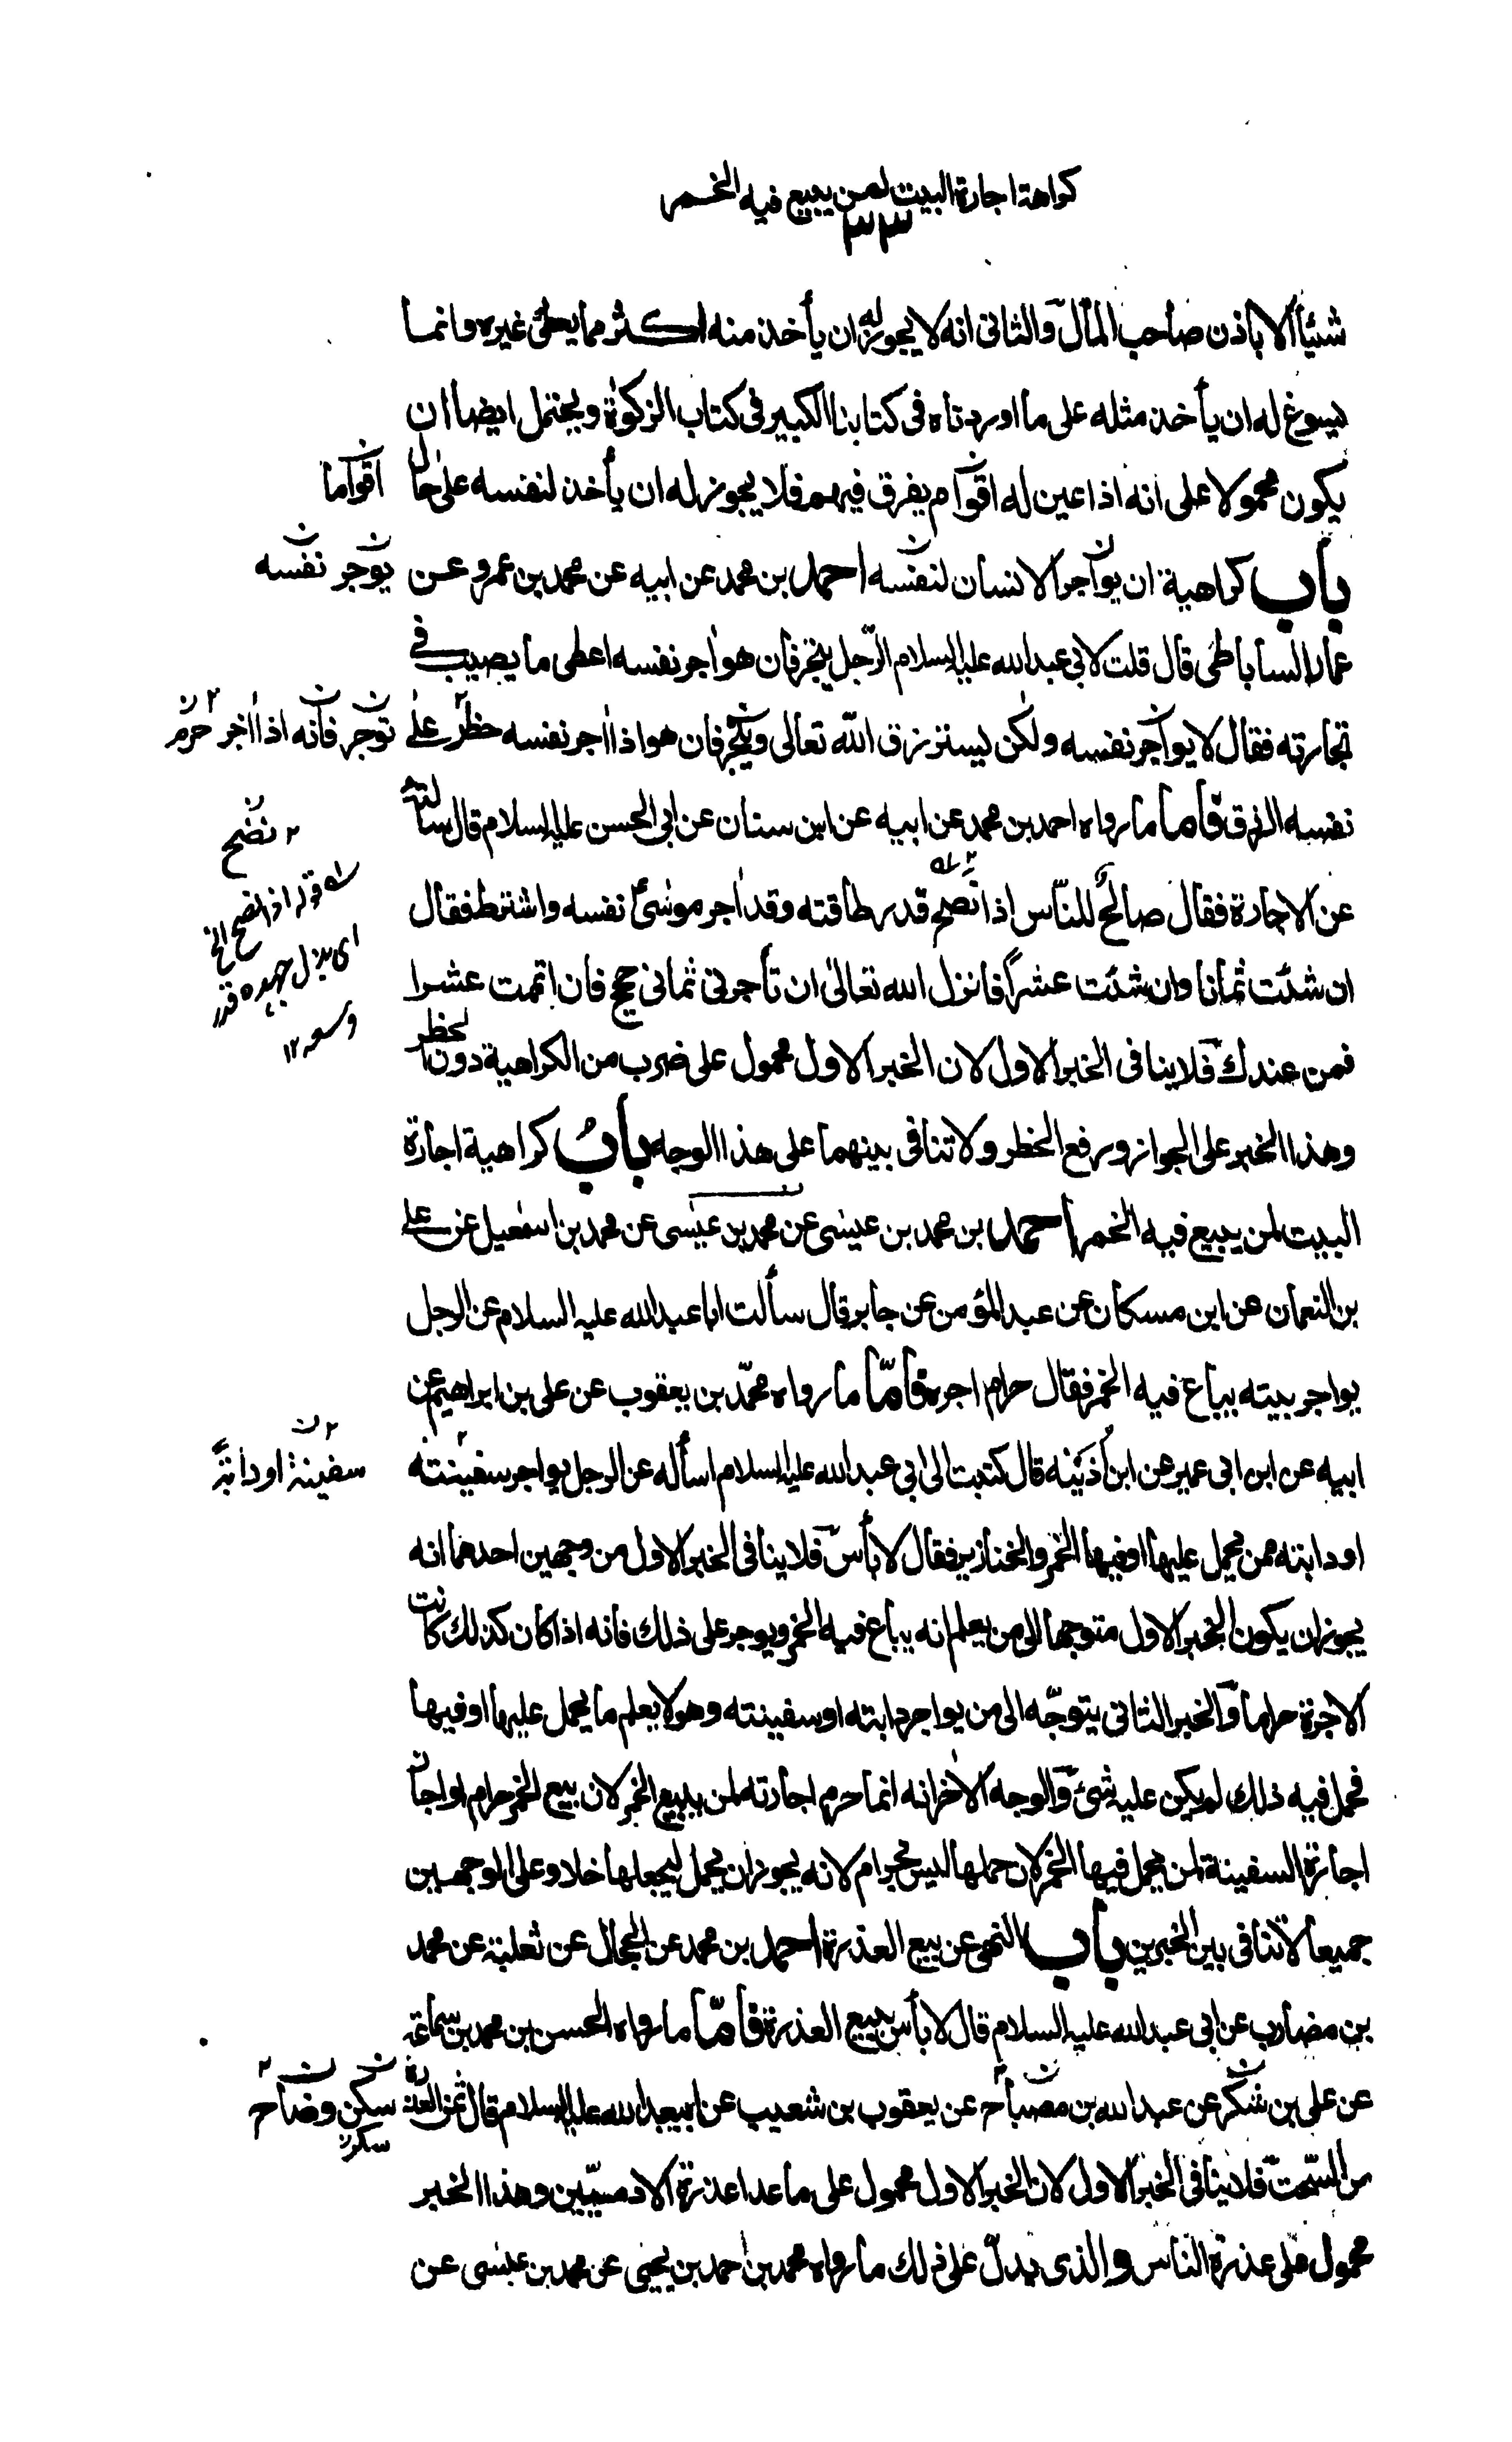 كراهة اجارة البيت لمن يبيع فيه الخمر
٣٣
شيئا الا باذن صاحب المال والثانى انه لا يجوز له ان يأخذ منه اكثر مما يعطى غيره وانما
يسوغ له ان يأخذ مثله على ما اوردناه فى كتابنا الكبير فى كتاب الزكوة ويحتمل ايضا ان
يكون محمولا على انه اذا عين له اقوام يفرق فيهم فلا يجوز له ان يأخذ لنفسه على حال
اقواما
باب كراهية ان يواجر الانسان لنفسه احمد بن محمد عن ابيه عن محمد بن عمرو عن
يوجر نفسه
عمار الساباطى قال قلت لابى عبد الله عليه السلام الرّجل يتجر فان هو اجر نفسه اعطى ما يصيب فى
تجارته فقال لا يواجر نفسه ولكن ليسترزق الله تعالى ويتجر فان هو اذا اجر نفسه حظر على
توجر فانه اذا اجر حرم
نفسه الرزق فاما ما رواه احمد بن محمد عن ابيه عن ابن سنان عن ابى الحسن عليه السلام قال سألته
٢ نضح
عن الاجارة فقال صالح للنّاس اذا نصح قدر طاقته وقد اجر موسىٰ نفسه واشترط فقال
قوله اذا نصح الخ
اى بذل جهده قدر
وسعه ١٢
ان شئت ثمانا وان شئت عشرًا فانزل الله تعالىٰ ان تأجرنى ثمانى حجج فان اتممت عشرا
فمن عندك فلا ينافى الخبر الاول لان الخبر الاول محمول على ضرب من الكراهية دون الحظر
وهذا الخبر على الجواز ورفع الحظر ولا تنافى بينهما على هذا الوجه باب كراهية اجارة
البيت لمن يبيع فيه الخمر احمد بن محمد بن عيسى عن محمد بن عيسى عن محمد بن اسمعيل عن على
بن النعمان عن ابن مسكان عن عبد المؤمن عن جابر قال سألت ابا عبد الله عليه السلام عن الرجل
يواجر بيته يباع فيه الخمر فقال حرام اجره فامّا ما رواه محمّد بن يعقوب عن على بن ابراهيم عن
ابيه عن ابن ابى عمير عن ابن أذينه قال كتبت الى ابى عبد الله عليه السلام اسأله عن الرجل يواجر سفينته
سفينة او دابة
او دابته ممن يحمل عليها او فيها الخمر والخنازير فقال لا بأس فلا ينافى الخبر الاول من وجهين احدهما انه
يجوز ان يكون الخبر الاول متوجها الى من يعلم انه يباع فيه الخمر ويوجر على ذلك فانه اذا كان كذلك كانت
الاجرة حراما والخبر الثانى يتوجّه الى من يواجر دابته او سفينته وهو لا يعلم ما يحمل عليها او فيها
فحمل فيه ذلك لم يكن عليه شئ والوجه الاخر انه انما حرم اجارته لمن يبيع الخمر لان بيع الخمر حرام واجاز
اجازة السفينة لمن يحمل فيها الخمر لان حملها ليس بحرام لانه يجوز ان يحمل ليجعلها خلا وعلى الوجهين
جميعا لا تنافى بين الخبرين باب النهى عن بيع العذرة احمد بن محمد عن الحجال عن ثعلبة عن محمد
بن مضارب عن ابى عبد الله عليه السلام قال لا بأس ببيع العذرة فامّا ما رواه الحسن بن محمد بن سماعة
عن على بن شكر عن عبد الله بن مصباح عن يعقوب بن شعيب عن ابيعبد الله عليه السلام قال ثمن العذرة
سكن وضاح
سكن
من السّحت فلا ينافى الخبر الاول لان الخبر الاول محمول على ما عدا عذرة الادميّين وهذا الخبر
محمول على عذرة الناس والذى يدلّ على ذلك ما رواه محمد بن احمد بن يحيى عن محمد بن عيسى عن